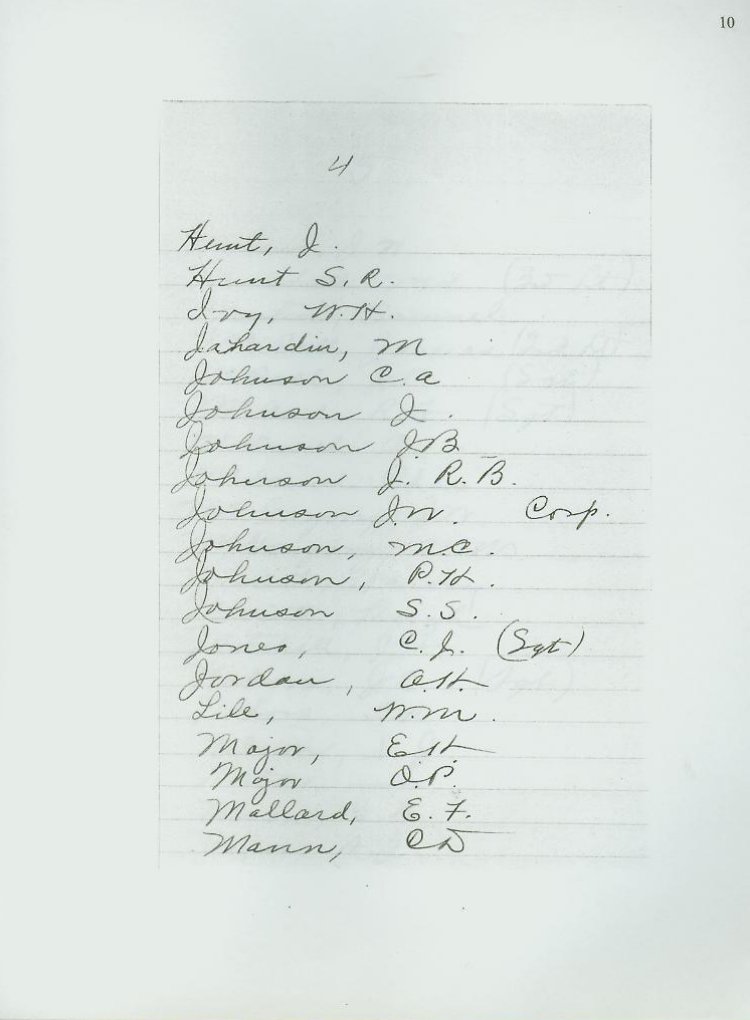 10
4
Hunt, J.
Hunt S. R.
Ivy, W. H.
Jahardin, M
Johnson C. a
Johnson J.
Johnson J. B.
Johnson J. R. B.
Johnson J. W. Corp.
Johnson, M. C.
Johnson, P. H.
Johnson S. S.
Jones, C. J. (Sgt)
Jordan, O. H.
Lile, W. M.
Major, E H
Major O. P.
Mallard, E. F.
Mann, C D